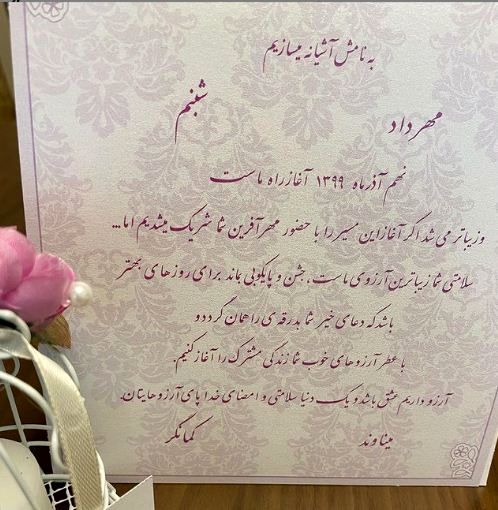 به نامش آشیانه میسازیم
مهرداد شبنم
نهم آذرماه ۱۳۹۹ آغاز راه ماست
وزیباتر می شد اگر آغاز این مسیر را با حضور مهرآفرین شما شریک میشدیم اما...
سلامتی شما زیباترین آرزوی ماست، جشن و پایکوبی بماند برای روزهای بهتر
باشد که دعای خیر شما بدرقه ی راهمان گردد و
با عطر آرزوهای خوب شما زندگی مشترک را آغاز کنیم.
آرزو داریم عشق باشد و یک دنیا سلامتی و امضای خدا پای آرزوهایتان.
میناوند کمانگر